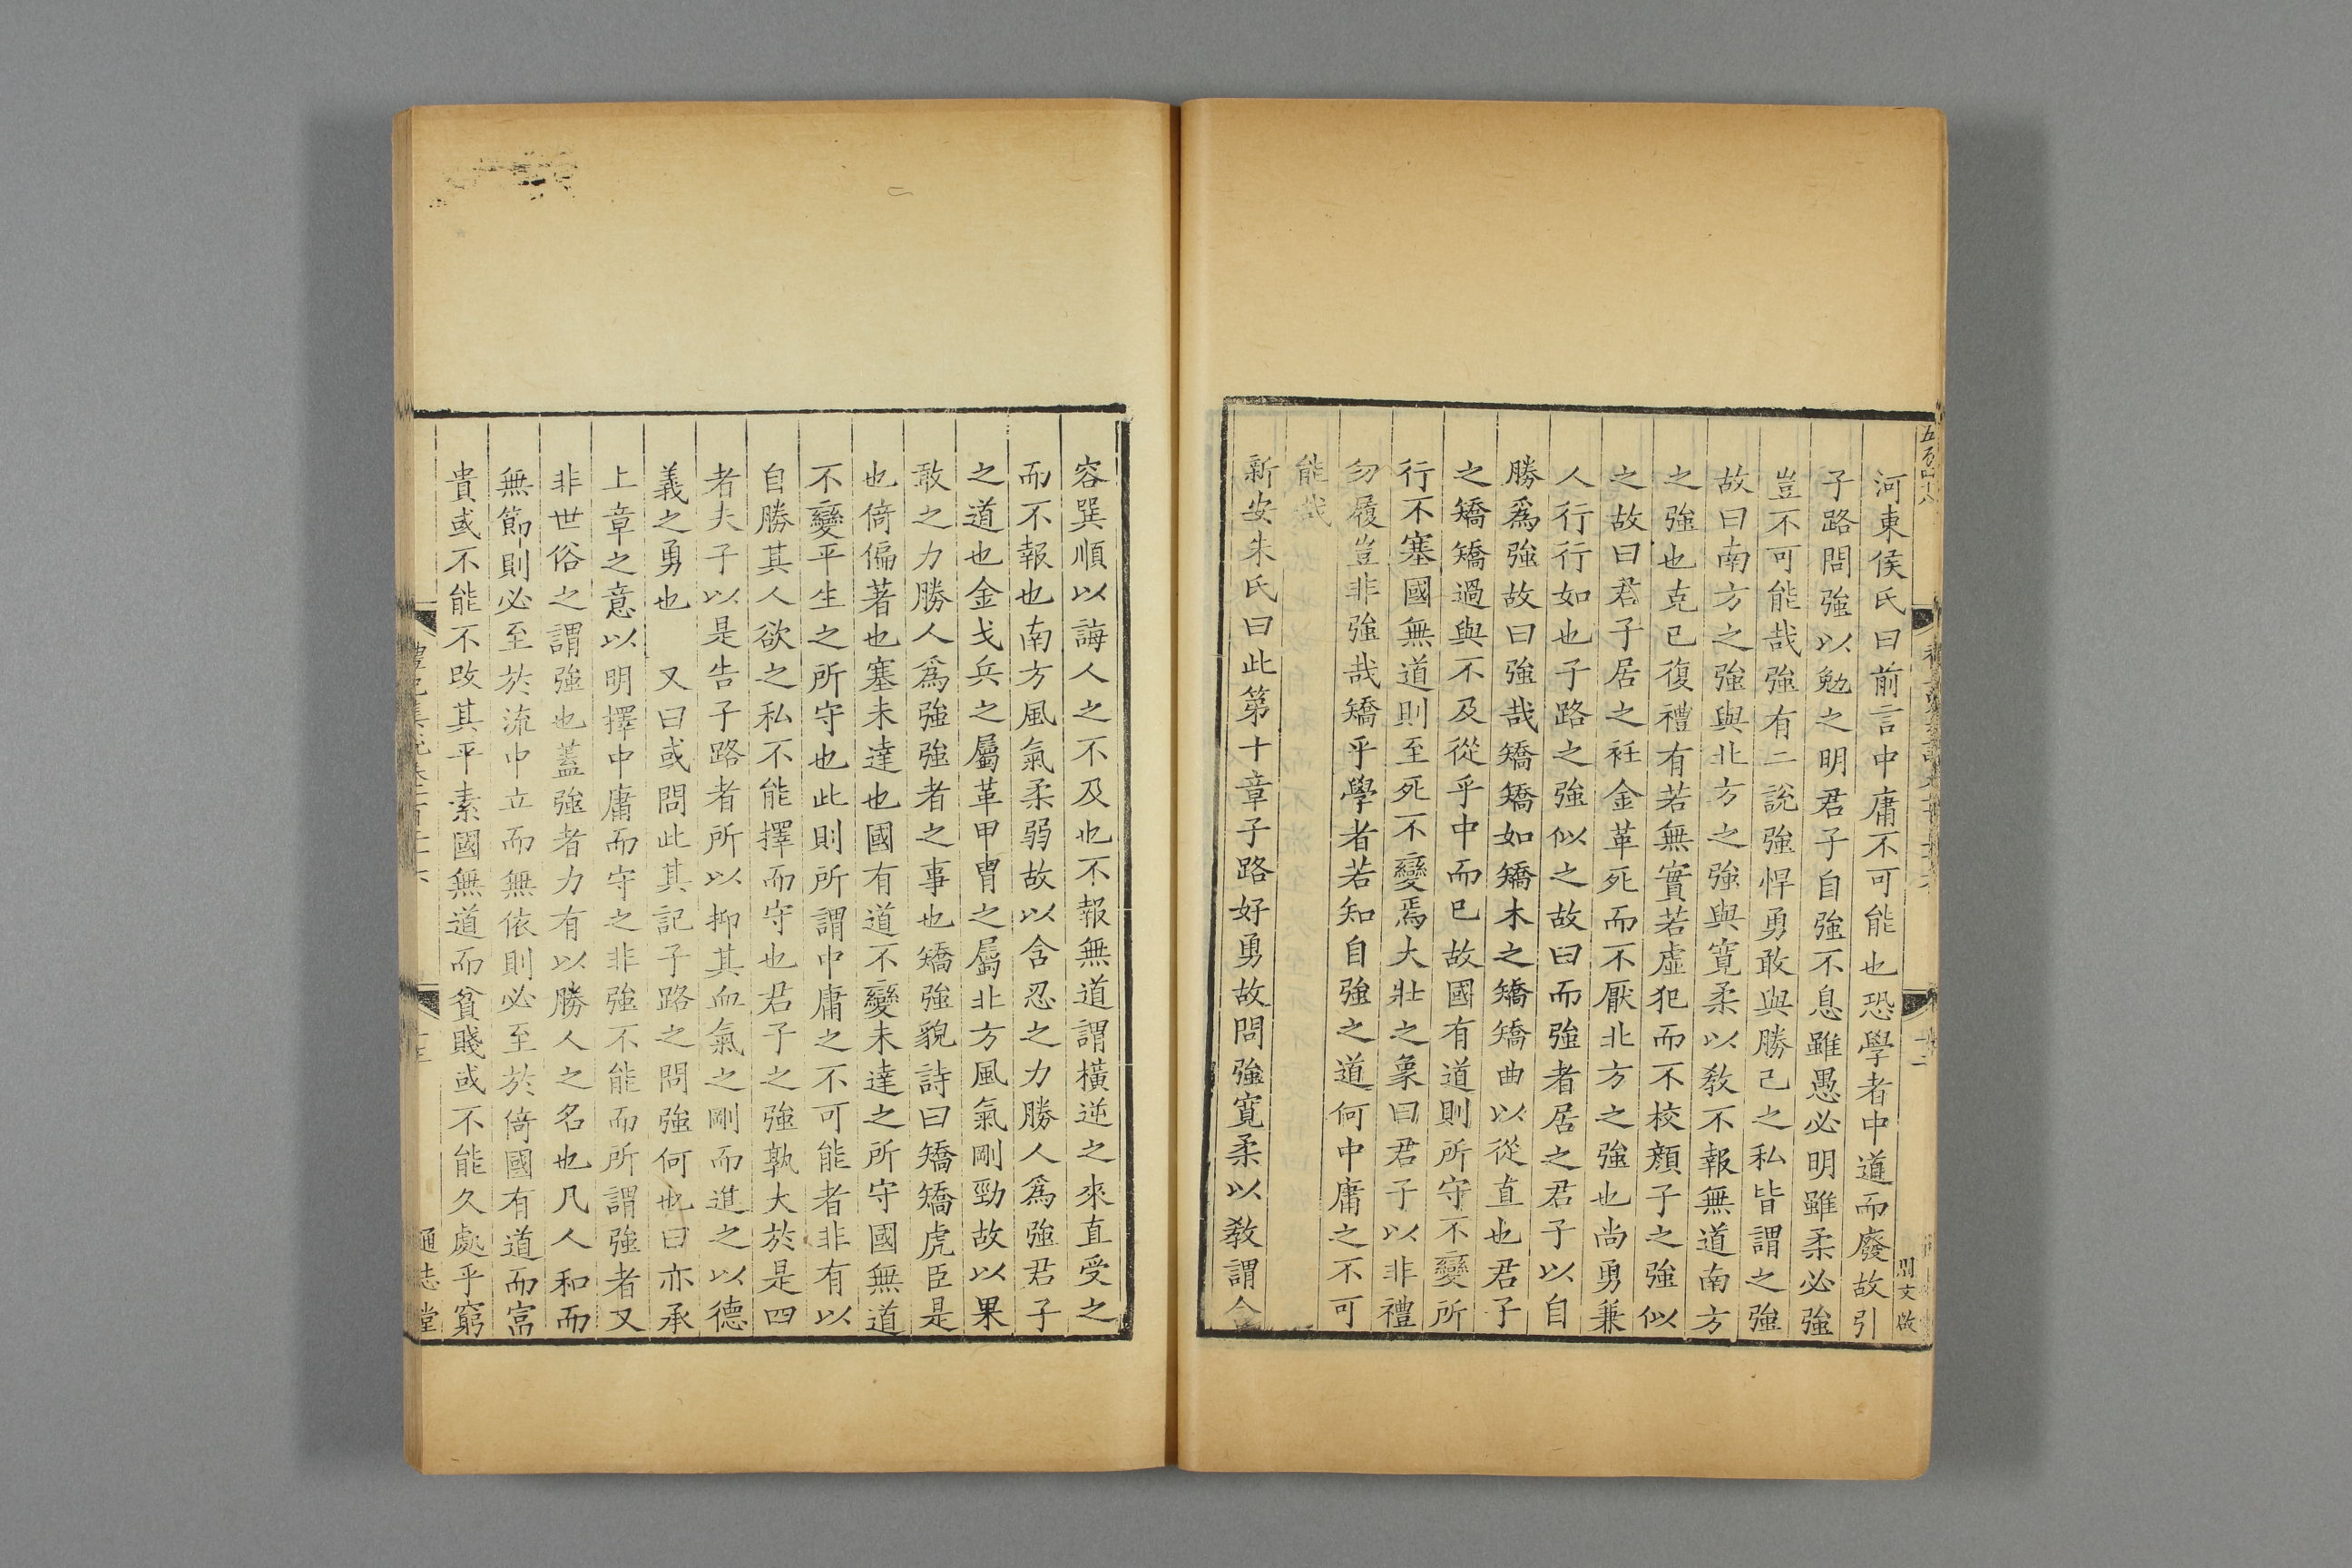 五百四十八
河東侯氏曰前言中庸不可能也恐學者中道而廢故引
子路問強以勉之明君子自強不息雖愚必明雖柔必強
豈不可能哉強有二說強悍勇敢與勝己之私皆謂之強
故曰南方之強與北方之強與寬柔以敎不報無道南方
之強也克已復禮有若無實若虛犯而不校顏子之強似
之故曰君子居之衽金革死而不厭北方之強也尚勇兼
人行行如也子路之強似之故曰而強者居之君子以自
勝爲強故曰強哉矯矯如矯木之矯矯曲以從直也君子
之矯矯過與不及從乎中而已故國有道則所守不變所
行不塞國無道則至死不變焉大壯之象曰君子以非禮
勿履豈非強哉矯乎學者若知自強之道何中庸之不可
能哉
新安朱氏曰此第十章子路好勇故問強寬柔以敎謂含
容巽順以誨人之不及也不報無道謂橫逆之來直受之
而不報也南方風氣柔弱故以含忍之力勝人爲強君子
之道也金戈兵之屬革甲胄之屬北方風氣剛勁故以果
敢之力勝人爲強強者之事也矯強貌詩曰矯矯虎臣是
也倚偏著也塞未達也國有道不變未達之所守國無道
不變平生之所守也此則所謂中庸之不可能者非有以
自勝其人欲之私不能擇而守也君子之強孰大於是四
者夫子以是告子路者所以抑其血氣之剛而進之以德
義之勇也　又曰或問此其記子路之問強何也曰亦承
上章之意以明擇中庸而守之非強不能而所謂強者又
非世俗之謂強也蓋強者力有以勝人之名也凡人和而
無節則必至於流中立而無依則必至於倚國有道而富
貴或不能不改其平素國無道而貧賤或不能久處乎窮
通志堂